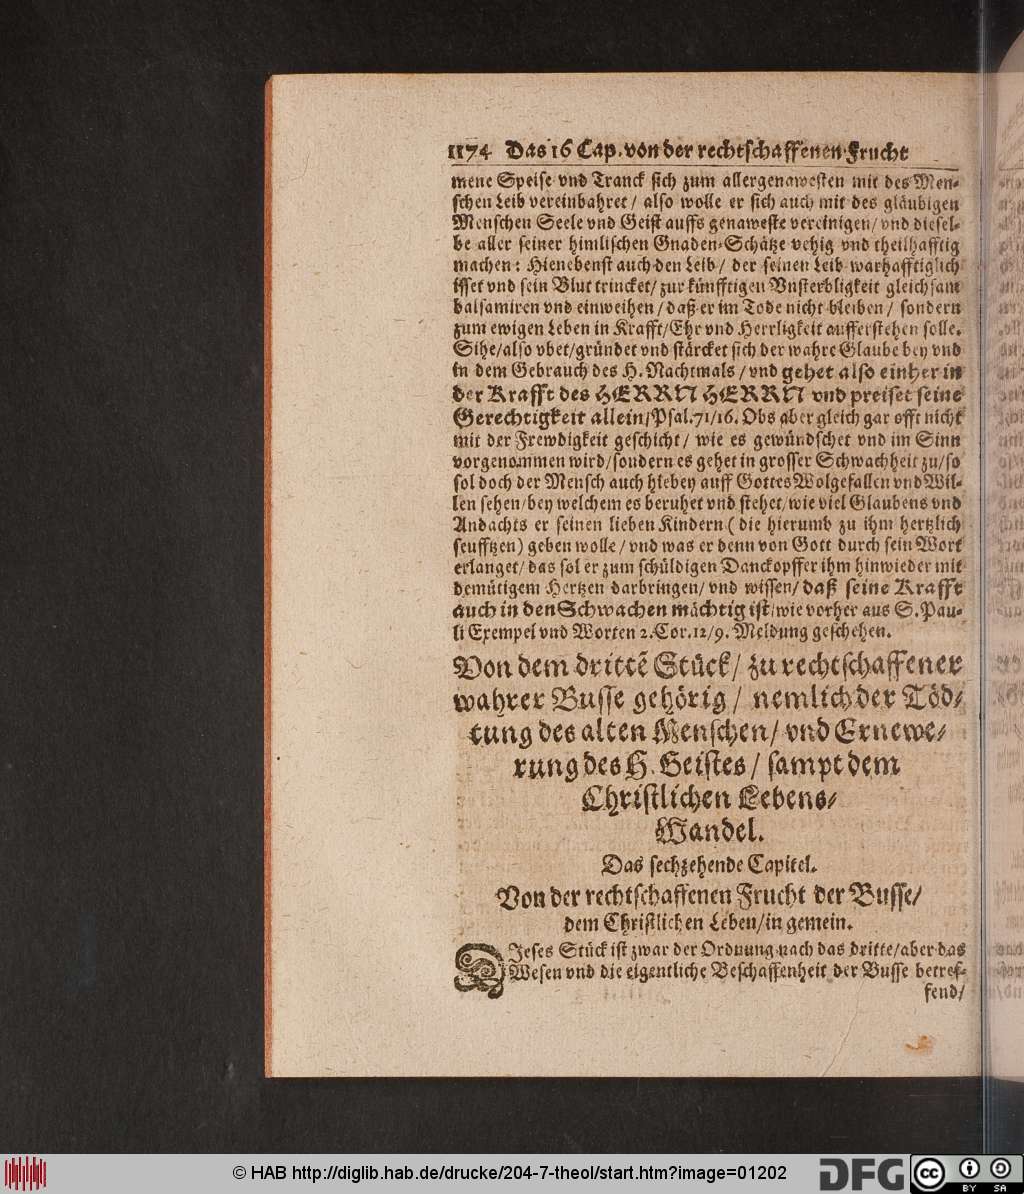 1174 Das 16 Cap. von der rechtschaffenen Frucht
mene Speise vnd Tranck sich zum allergenawesten mit des Men-
schen Leib vereinbahret / also wolle er sich auch mit des gläubigen
Menschen Seele vnd Geist auffs genaweste vereinigen / vnd diesel-
be aller seiner himlischen Gnaden-Schätze vehig vnd theilhafftig
machen: Hienebenst auch den Leib / der seinen Leib warhafftiglich
isset vnd sein Blut trincket / zur künfftigen Vnsterbligkeit gleichsam
balsamiren vnd einweihen / daß er im Tode nicht bleiben / sondern
zum ewigen Leben in Krafft / Ehr vnd Herrligkeit aufferstehen solle.
Sihe / also vbet / gründet vnd stärcket sich der wahre Glaube bey vnd
in dem Gebrauch des H. Nachtmals / vnd gehet also einher in
der Krafft des HERRN HERRN vnd preiset seine
Gerechtigkeit allein / Psal. 71/16. Obs aber gleich gar offt nicht
mit der Frewdigkeit geschicht / wie es gewündschet vnd im Sinn
vorgenommen wird / sondern es gehet in grosser Schwachheit zu / so
sol doch der Mensch auch hiebey auff Gottes Wolgefallen vnd Wil-
len sehen / bey welchem es beruhet vnd stehet / wie viel Glaubens vnd
Andachts er seinen lieben Kindern ( die hierumb zu ihm hertzlich
seufftzen) geben wolle / vnd was er denn von Gott durch sein Wort
erlanget / das sol er zum schüldigen Danckopffer ihm hinwieder mit
demütigem Hertzen darbringen / vnd wissen / daß seine Krafft
auch in den Schwachen mächtig ist / wie vorher aus S. Pau-
li Exempel vnd Worten 2. Cor. 12/9. Meldung geschehen.
Von dem dritte͂ Stück / zu rechtschaffener
wahrer Busse gehörig / nemlich der Töd-
tung des alten Menschen / vnd Ernewe-
rung des H. Geistes / sampt dem
Christlichen Lebens-
Wandel.
Das sechzehende Capitel.
Von der rechtschaffenen Frucht der Busse /
dem Christlichen Leben / in gemein.
DJeses Stück ist zwar der Ordnung nach das dritte / aber das
Wesen vnd die eigentliche Beschaffenheit der Busse betref-
fend /
© HAB http://diglib.hab.de/drucke/204-7-theol/start.htm?image=01202
DFG
cc BY SA